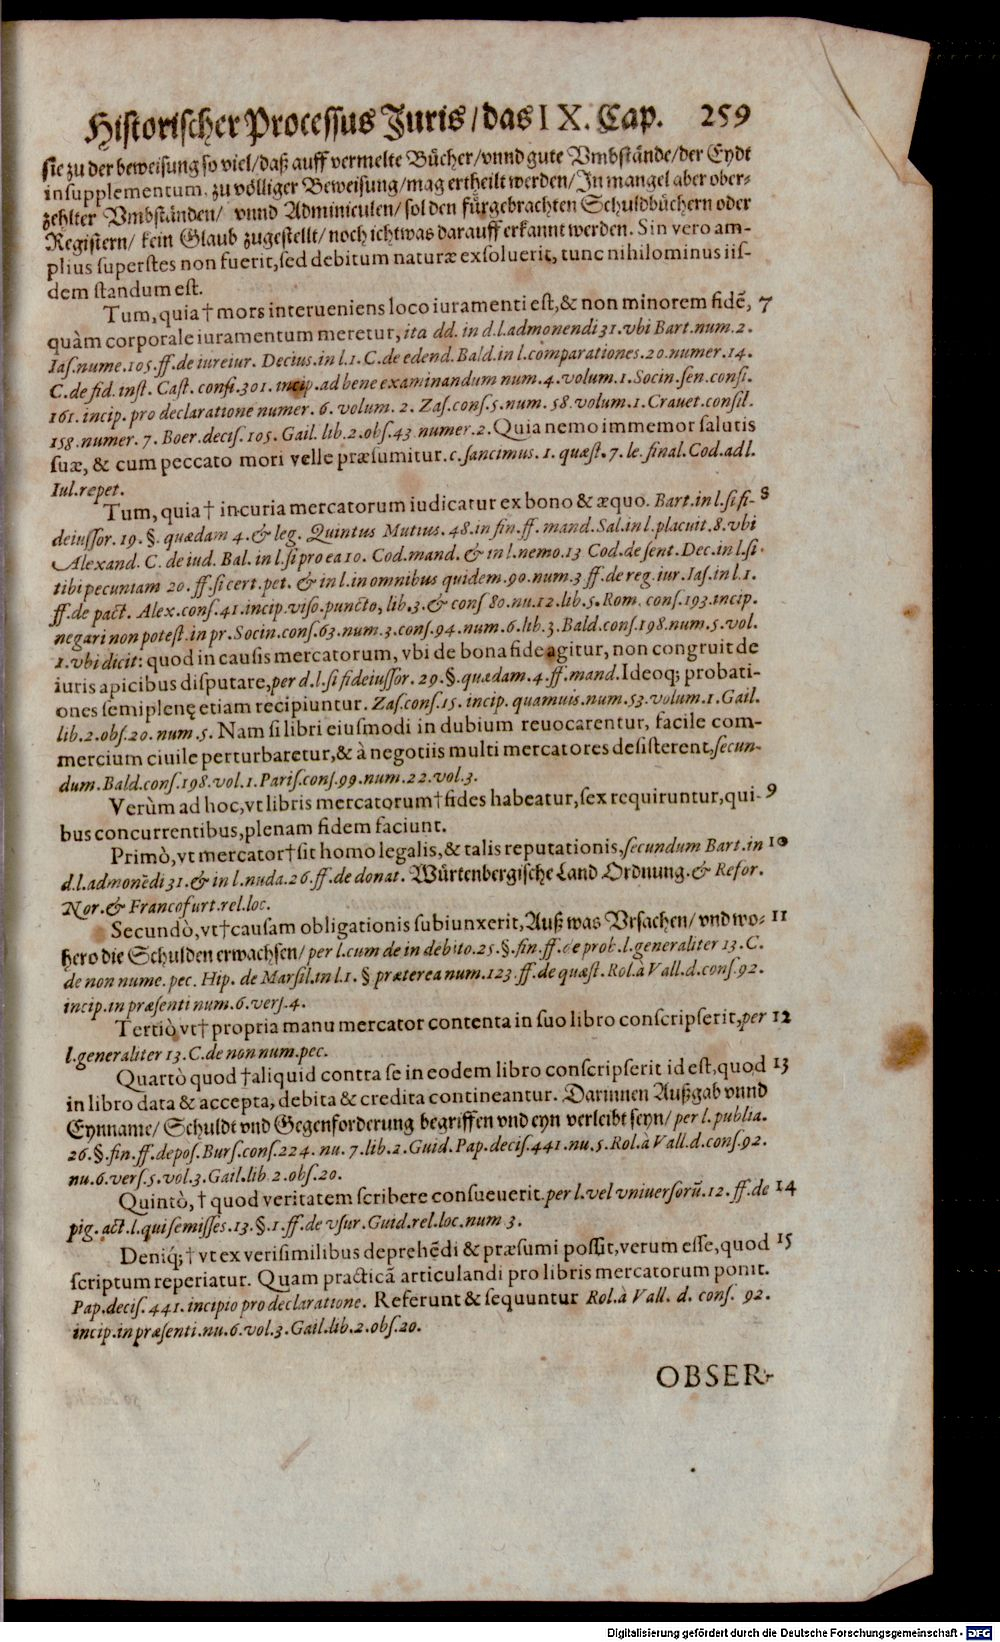 Historischer Processus Juris / das IX. Cap. 259
sie zu der beweisung so viel / daß auff vermelte Bücher / vnnd gute Vmbstände / der Eydt
in supplementum, zu völliger Beweisung / mag ertheilt werden / In mangel aber ober-
zehlter Vmbständen / vnnd Adminiculen / sol den fürgebrachten Schuldbüchern oder
Registern / kein Glaub zugestellt / noch ichtwas darauff erkannt werden. Sin vero am-
plius superstes non fuerit, sed debitum naturæ exsoluerit, tunc nihilominus iis-
dem standum est.
Tum, quia † mors interueniens loco iuramenti est, & non minorem fidē, 7
quàm corporale iuramentum meretur, ita dd. in d.l. admonendi 31. vbi Bart. num. 2.
Ias. nume. 105. ff. de iureiur. Decius. in l. 1. C. de edend. Bald. in l. comparationes. 20. numer. 14.
C. de fid. inst. Cast. consi. 301. incip. ad bene examinandum num. 4. volum. 1. Socin. sen. consi.
161. incip. pro declaratione numer. 6. volum. 2. Zas. cons. 5. num. 58. volum. 1. Crauet. consil.
158. numer. 7. Boer. decis. 105. Gail. lib. 2. obs. 43. numer. 2. Quia nemo immemor salutis
suæ, & cum peccato mori velle præsumitur. c. sancimus. 1. quæst. 7. le. final. Cod. ad l.
Iul. repet.
Tum, quia † incuria mercatorum iudicatur ex bono & æquo. Bart. in l. si fi- 8
deiussor. 19. §. quædam 4. & leg. Quintus Mutius. 48. in fin. ff. mand. Sal. in l. placuit. 8. vbi
Alexand. C. de iud. Bal. in l. si pro ea 10. Cod. mand. & in l. nemo. 13 Cod. de sent. Dec. in l. si
tibi pecuniam 20. ff. si cert. pet. & in l. in omnibus quidem. 90. num. 3 ff. de reg. iur. Ias. in l. 1.
ff. de pact. Alex. cons. 41. incip. viso puncto, lib. 3. & cons 80. nu. 12. lib. 5. Rom. cons. 193. incip.
negari non potest. in pr. Socin. cons. 63. num. 3. cons. 94. num. 6. lib. 3. Bald. cons. 198. num. 5. vol.
1. vbi dicit: quod in causis mercatorum, vbi de bona fide agitur, non congruit de
iuris apicibus disputare, per d. l. si fideiussor. 29. §. quædam. 4. ff. mand. Ideoq; probati-
ones semiplenę etiam recipiuntur. Zas. cons. 15. incip. quamuis. num. 53. volum. 1. Gail.
lib. 2. obs. 20. num. 5. Nam si libri eiusmodi in dubium reuocarentur, facile com-
mercium ciuile perturbaretur, & à negotiis multi mercatores desisterent, secun-
dum. Bald. cons. 198. vol. 1. Paris. cons. 99. num. 22. vol. 3.
Verùm ad hoc, vt libris mercatorum † fides habeatur, sex requiruntur, qui- 9
bus concurrentibus, plenam fidem faciunt.
Primò, vt mercator † sit homo legalis, & talis reputationis, secundum Bart. in 10
d. l. admonēdi 31. & in l. nuda. 26. ff. de donat. Würtenbergische Land Ordnung. & Refor.
Nor. & Francofurt. rel. loc.
Secundò, vt † causam obligationis subiunxerit, Auß was Vrsachen / vnd wo- 11
hero die Schulden erwachsen / per l. cum de in debito. 25. §. fin. ff. de prob. l. generaliter 13. C.
de non nume. pec. Hip. de Marsil. in l. 1. § præterea num. 123. ff. de quæst. Rol. à Vall. d. cons. 92.
incip. in præsenti num. 6. vers. 4.
Tertiò vt † propria manu mercator contenta in suo libro conscripserit, per 12
l. generaliter 13. C. de non num. pec.
Quartò quod † aliquid contra se in eodem libro conscripserit id est, quod 13
in libro data & accepta, debita & credita contineantur. Darinnen Außgab vnnd
Eynname / Schuldt vnd Gegenforderung begriffen vnd eyn verleibt seyn / per l. publia.
26. §. fin. ff. depos. Burs. cons. 224. nu. 7. lib. 2. Guid. Pap. decis. 441. nu. 5. Rol. à Vall. d. cons. 92.
nu. 6. vers. 5. vol. 3. Gail. lib. 2. obs. 20.
Quintò, † quod veritatem scribere consueuerit. per l. vel vniuersorū. 12. ff. de 14
pig. act. l. qui semisses. 13. §. 1. ff. de vsur. Guid. rel. loc. num 3.
Deniq; † vt ex verisimilibus deprehēdi & præsumi possit, verum esse, quod 15
scriptum reperiatur. Quam practicā articulandi pro libris mercatorum ponit.
Pap. decis. 441. incipio pro declaratione. Referunt & sequuntur Rol. à Vall. d. cons. 92.
incip. in præsenti. nu. 6. vol. 3. Gail. lib. 2. obs. 20.
OBSER-
Digitalisierung gefördert durch die Deutsche Forschungsgemeinschaft - DFG